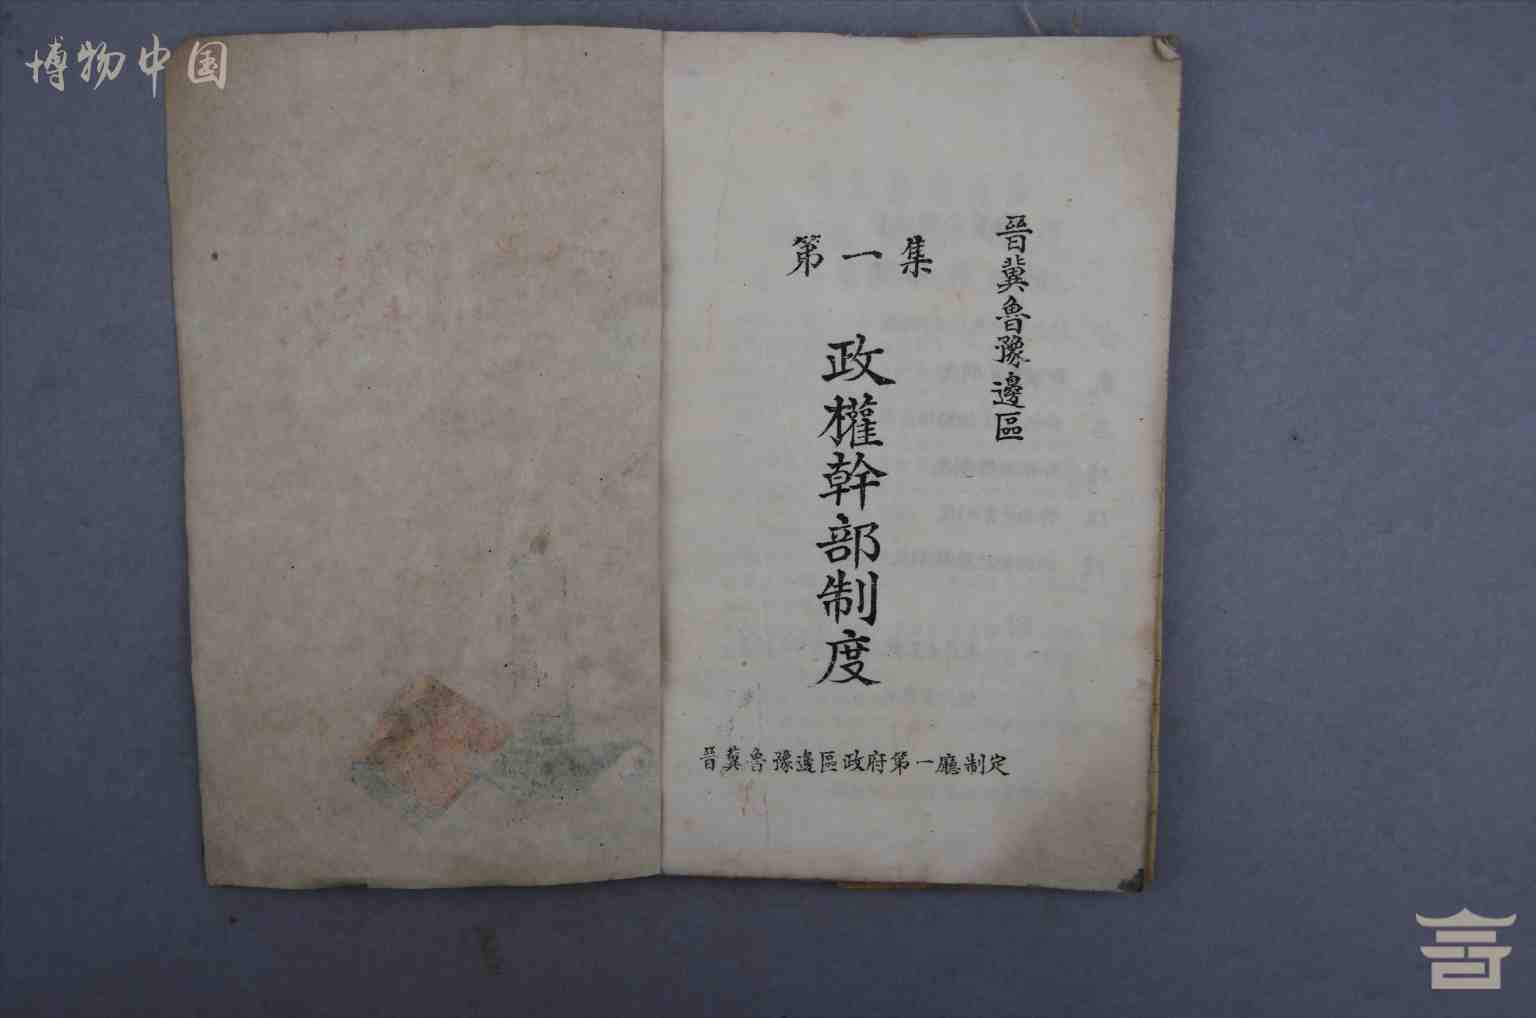 博物中国
晉冀魯豫邊區
第一集
政權幹部制度
晉冀魯豫邊區政府第一廳制定